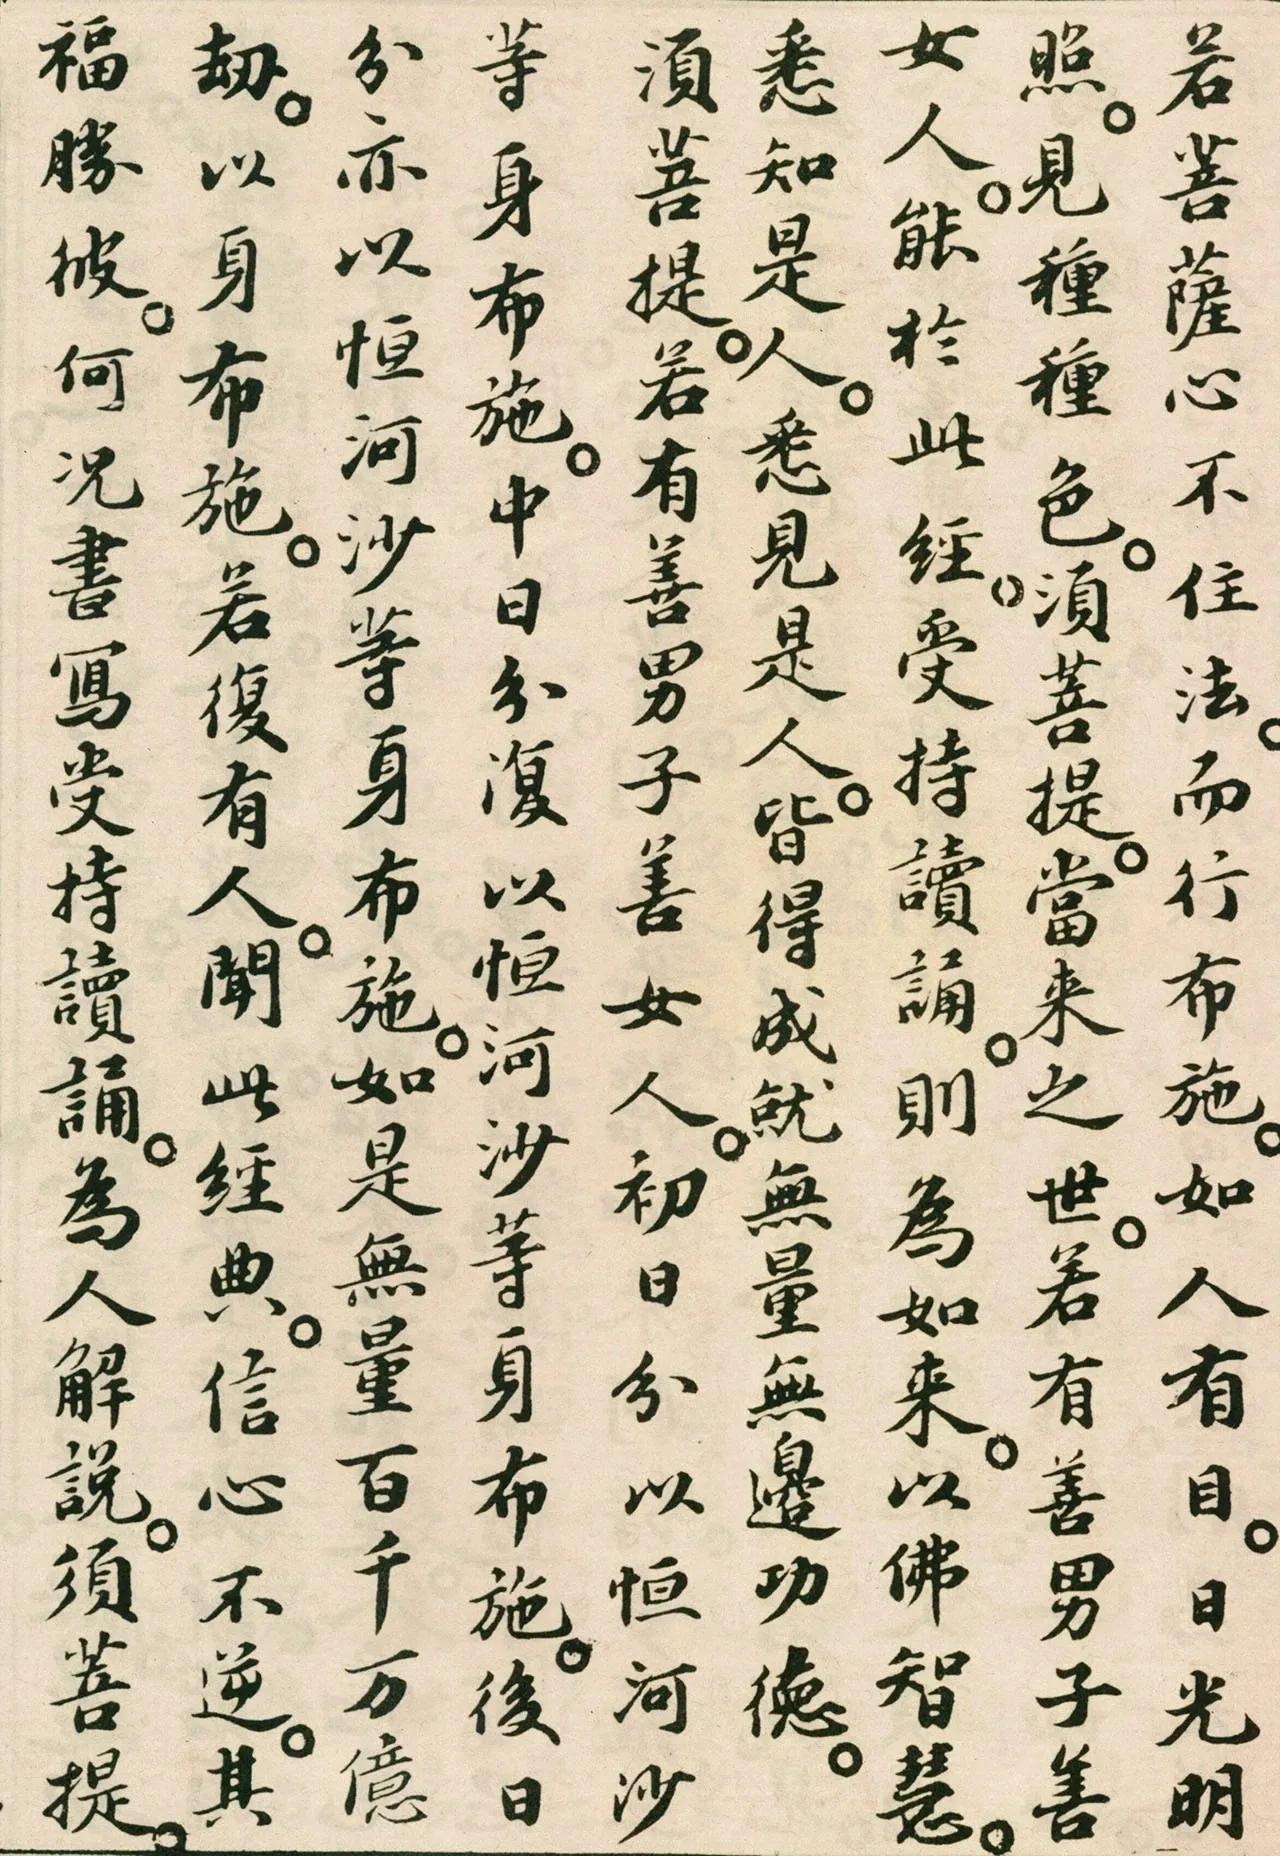 若菩薩心不住法。而行布施。如人有目。日光明
照。見種種色。須菩提。當来之世。若有善男子善
女人。能於此經。受持讀誦。則為如来。以佛智慧。
悉知是人。悉見是人。皆得成就無量無邊功德。
須菩提。若有善男子善女人。初日分以恒河沙
等身布施。中日分復以恒河沙等身布施。後日
分亦以恒河沙等身布施。如是無量百千万億
劫。以身布施。若復有人。聞此經典。信心不逆。其
福勝彼。何况書寫受持讀誦。為人解説。須菩提。